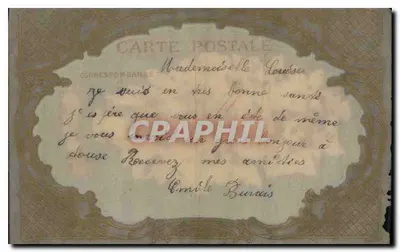 CARTE POSTALE
CORRESPONDANCE
Mademoiselle Louise
je suis en très bonne santé
j'espère que vous en été de même
je vous bonjour à
Recevez mes amitiés
Emile
CPRAPHIL